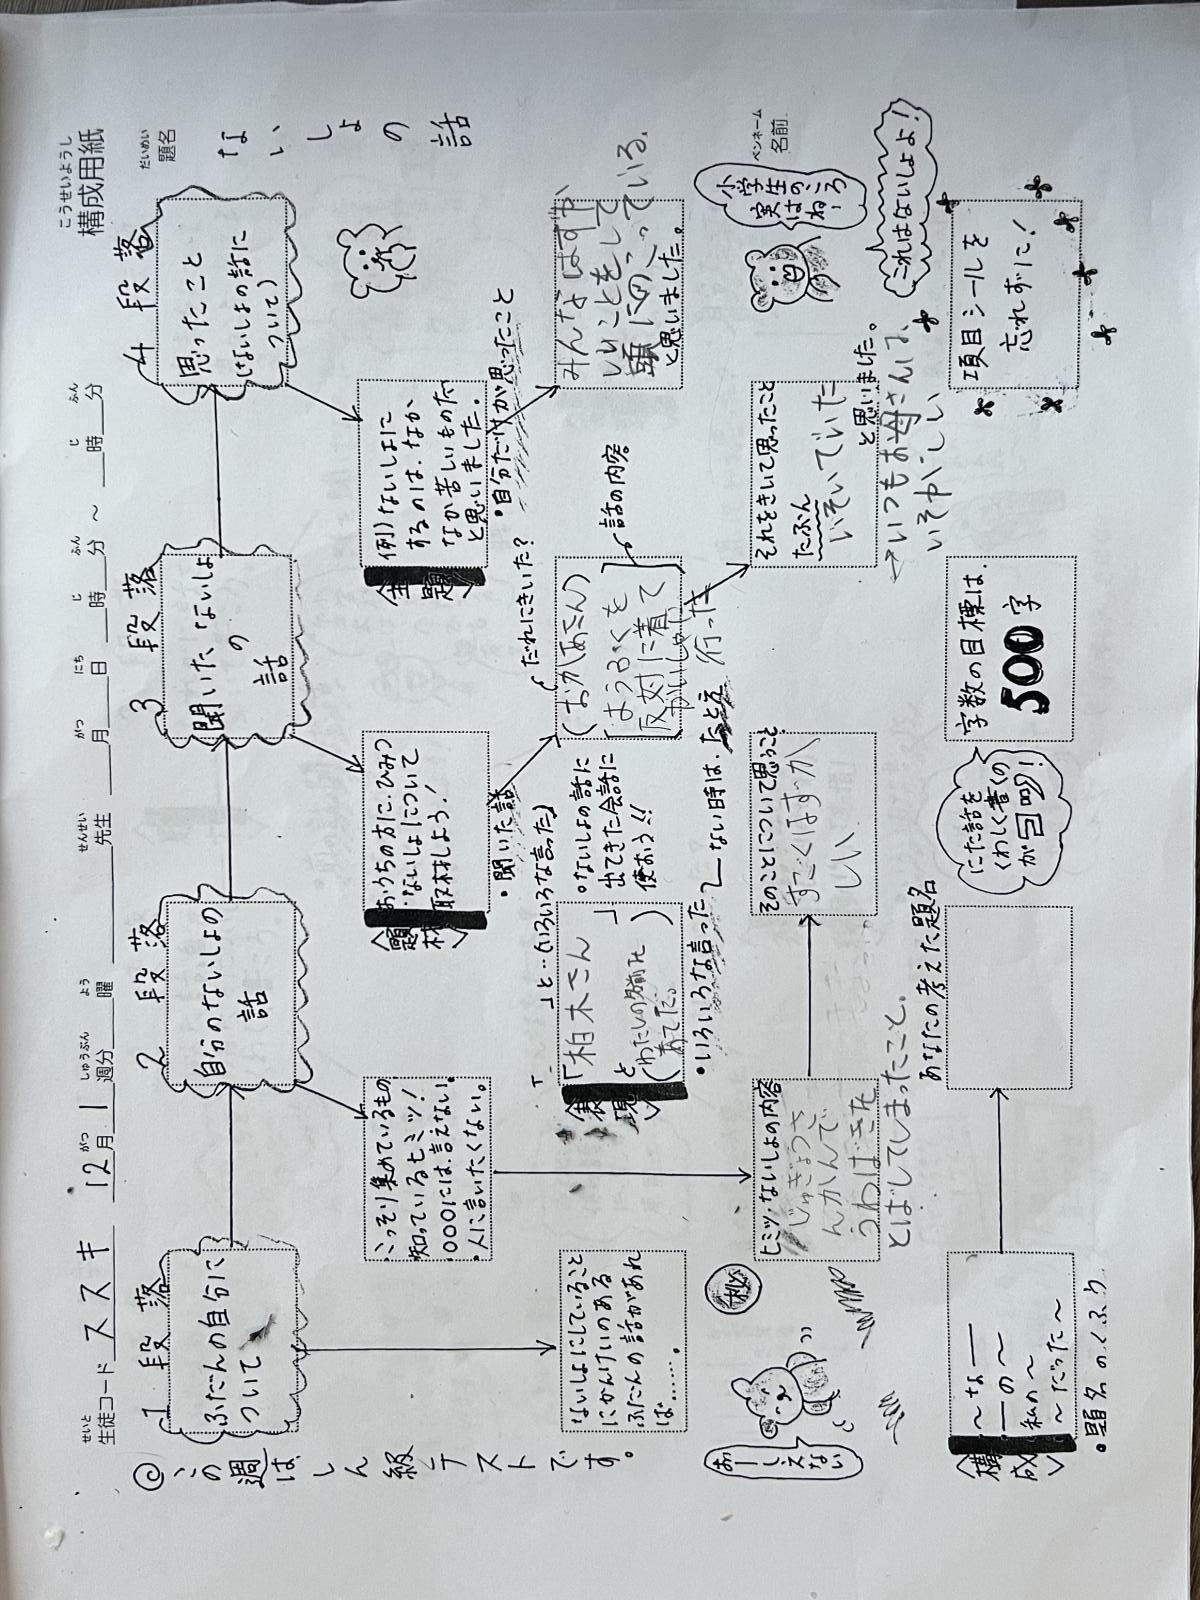 こうせいようし
構成用紙
せいと
生徒コード ススキ 12月 1週分 曜 先生 月 日 時 分 ~ 時 分
がつ しゅうぶん よう せんせい がつ にち じ ふん じ ふん
だいめい
題名
ないしょの話
ペンネーム
名前
◎この週はしん級テストです。
1段落
ふだんの自分に
ついて
2段落
自分のないしょの
話
3段落
聞いたないしょ
の
話
4段落
思ったこと
(ないしょの話に
ついて)
〈題材〉
・こっそり集めているもの
・知っているヒミツ!
・〇〇〇には言えない。
・人に言いたくない。
おうちの方に、ひみつ
・ないしょについて
取材しよう!
・聞いた話
〈主題〉
例)ないしょに
するのは、なか
なか苦しいものだ
と思いました。
・自分だけが思ったこと
ないしょにしていること
にかんけいのある
ふだんの話があれ
ば……。
〈表現〉
「 」と…(いろいろな言った)
「柏木さん 」
と
(わたしの名前を
あてた。 )
・いろいろな言った
・ないしょの話に
出てきた会話に
使おう!!
ない時は、たとえ
だれにきいた?
(おかあさん)
ようふくを
反対に着て
かいしゃに
行った
話の内容
みんなはずか
しいことをして
頭にのこっている。
と思いました。
ヒミツ・ないしょの内容
じゅぎょうさ
んかんで
うわばきを
とばしてしまったこと。
そのことについて思うこと
すごくはずか
しい
それをきいて思ったこと
たぶん
いそいでいた
と思いました。
→いつもお母さんは、
いそがしい
秘
おーしえない
小学生のころ
実はね…
これはないしょよ!
〈構成〉
~な――
――の~
私の~
~だった~
・題名のくふう
あなたの考えた題名
にた話を
くわしく書くの
が合同!
字数の目標は、
500字
項目シールを
忘れずに!